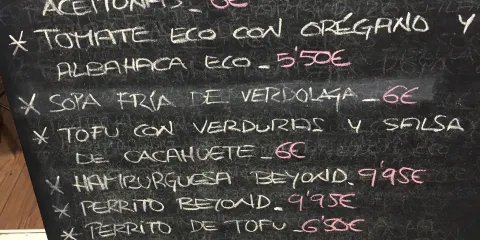 ACEITONAS_ 6€
* TOMATE ECO CON ORÉGANO Y
ALBAHACA ECO_5'50€
* SOPA FRÍA DE VERDOLAGA_6€
* TOFU CON VERDURAS Y SALSA
DE CACAHUETE_6€
* HAMBURGUESA BEYOND_9'95€
* PERRITO BEYOND_9'95€
* PERRITO DE TOFU_6'50€